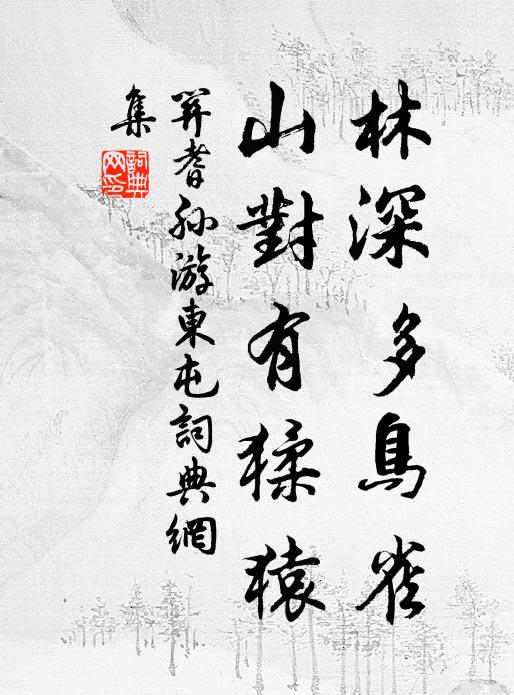 林深多鳥雀
山對有猱猿
羿耆孙游東屯詞典網
集
詞典網印